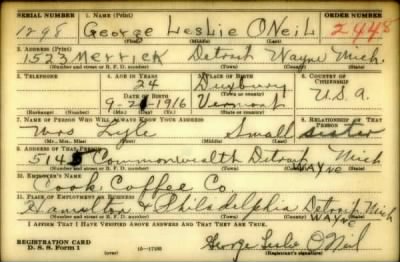 SERIAL NUMBER 1. NAME (Print) ORDER NUMBER
1898 George Leslie ONeil 2448
(First) (Middle) (Last)
2. ADDRESS (Print)
1533 Merrick Detroit Wayne Mich.
(Number and street or R. F. D. number) (Town) (County) (State)
3. TELEPHONE 4. AGE IN YEARS 5. PLACE OF BIRTH 6. COUNTRY OF CITIZENSHIP
24 Duxbury
DATE OF BIRTH (Town or county)
9-21-1916 Vermont U.S.A.
(Exchange) (Number) (Mo.) (Day) (Yr.) (State or country)
7. NAME OF PERSON WHO WILL ALWAYS KNOW YOUR ADDRESS 8. RELATIONSHIP OF THAT PERSON
Mrs Lyle Small sister
(Mr., Mrs., Miss) (First) (Middle) (Last)
9. ADDRESS OF THAT PERSON
5145 Commonwealth Detroit WAYNE Mich
(Number and street or R. F. D. number) (Town) (County) (State)
10. EMPLOYER'S NAME
Cook Coffee Co
11. PLACE OF EMPLOYMENT OR BUSINESS
Hamilton & Philadelphia Detroit WAYNE Mich
(Number and street or R. F. D. number) (Town) (County) (State)
I AFFIRM THAT I HAVE VERIFIED ABOVE ANSWERS AND THAT THEY ARE TRUE.
REGISTRATION CARD
D. S. S. Form 1 (over) George Leslie O'Neil
(Registrant's signature)